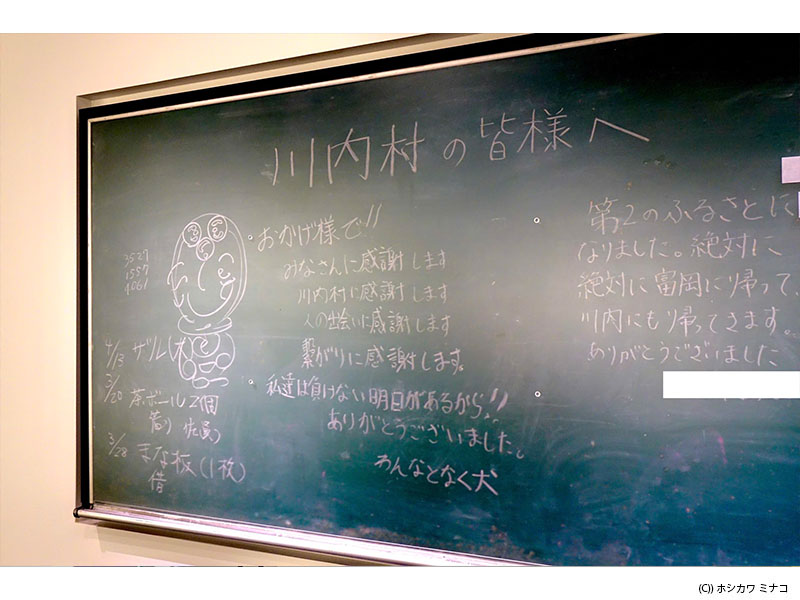 川内村の皆様へ
おかげ様で!!
みなさんに感謝します
川内村に感謝します
人の出会いに感謝します
繋がりに感謝します。
私達は負けない明日があるから!!
ありがとうございました。
わんなとなく犬
3527
1557
4061
4/13 ザル(大)
3/20 茶.ボール2個
3/28 まな板(1枚)
借
第2のふるさとに
なりました。絶対に
絶対に富岡に帰って、
川内にもり帰ってきます。
ありがとうございました
(C)) ホシカワ ミナコ